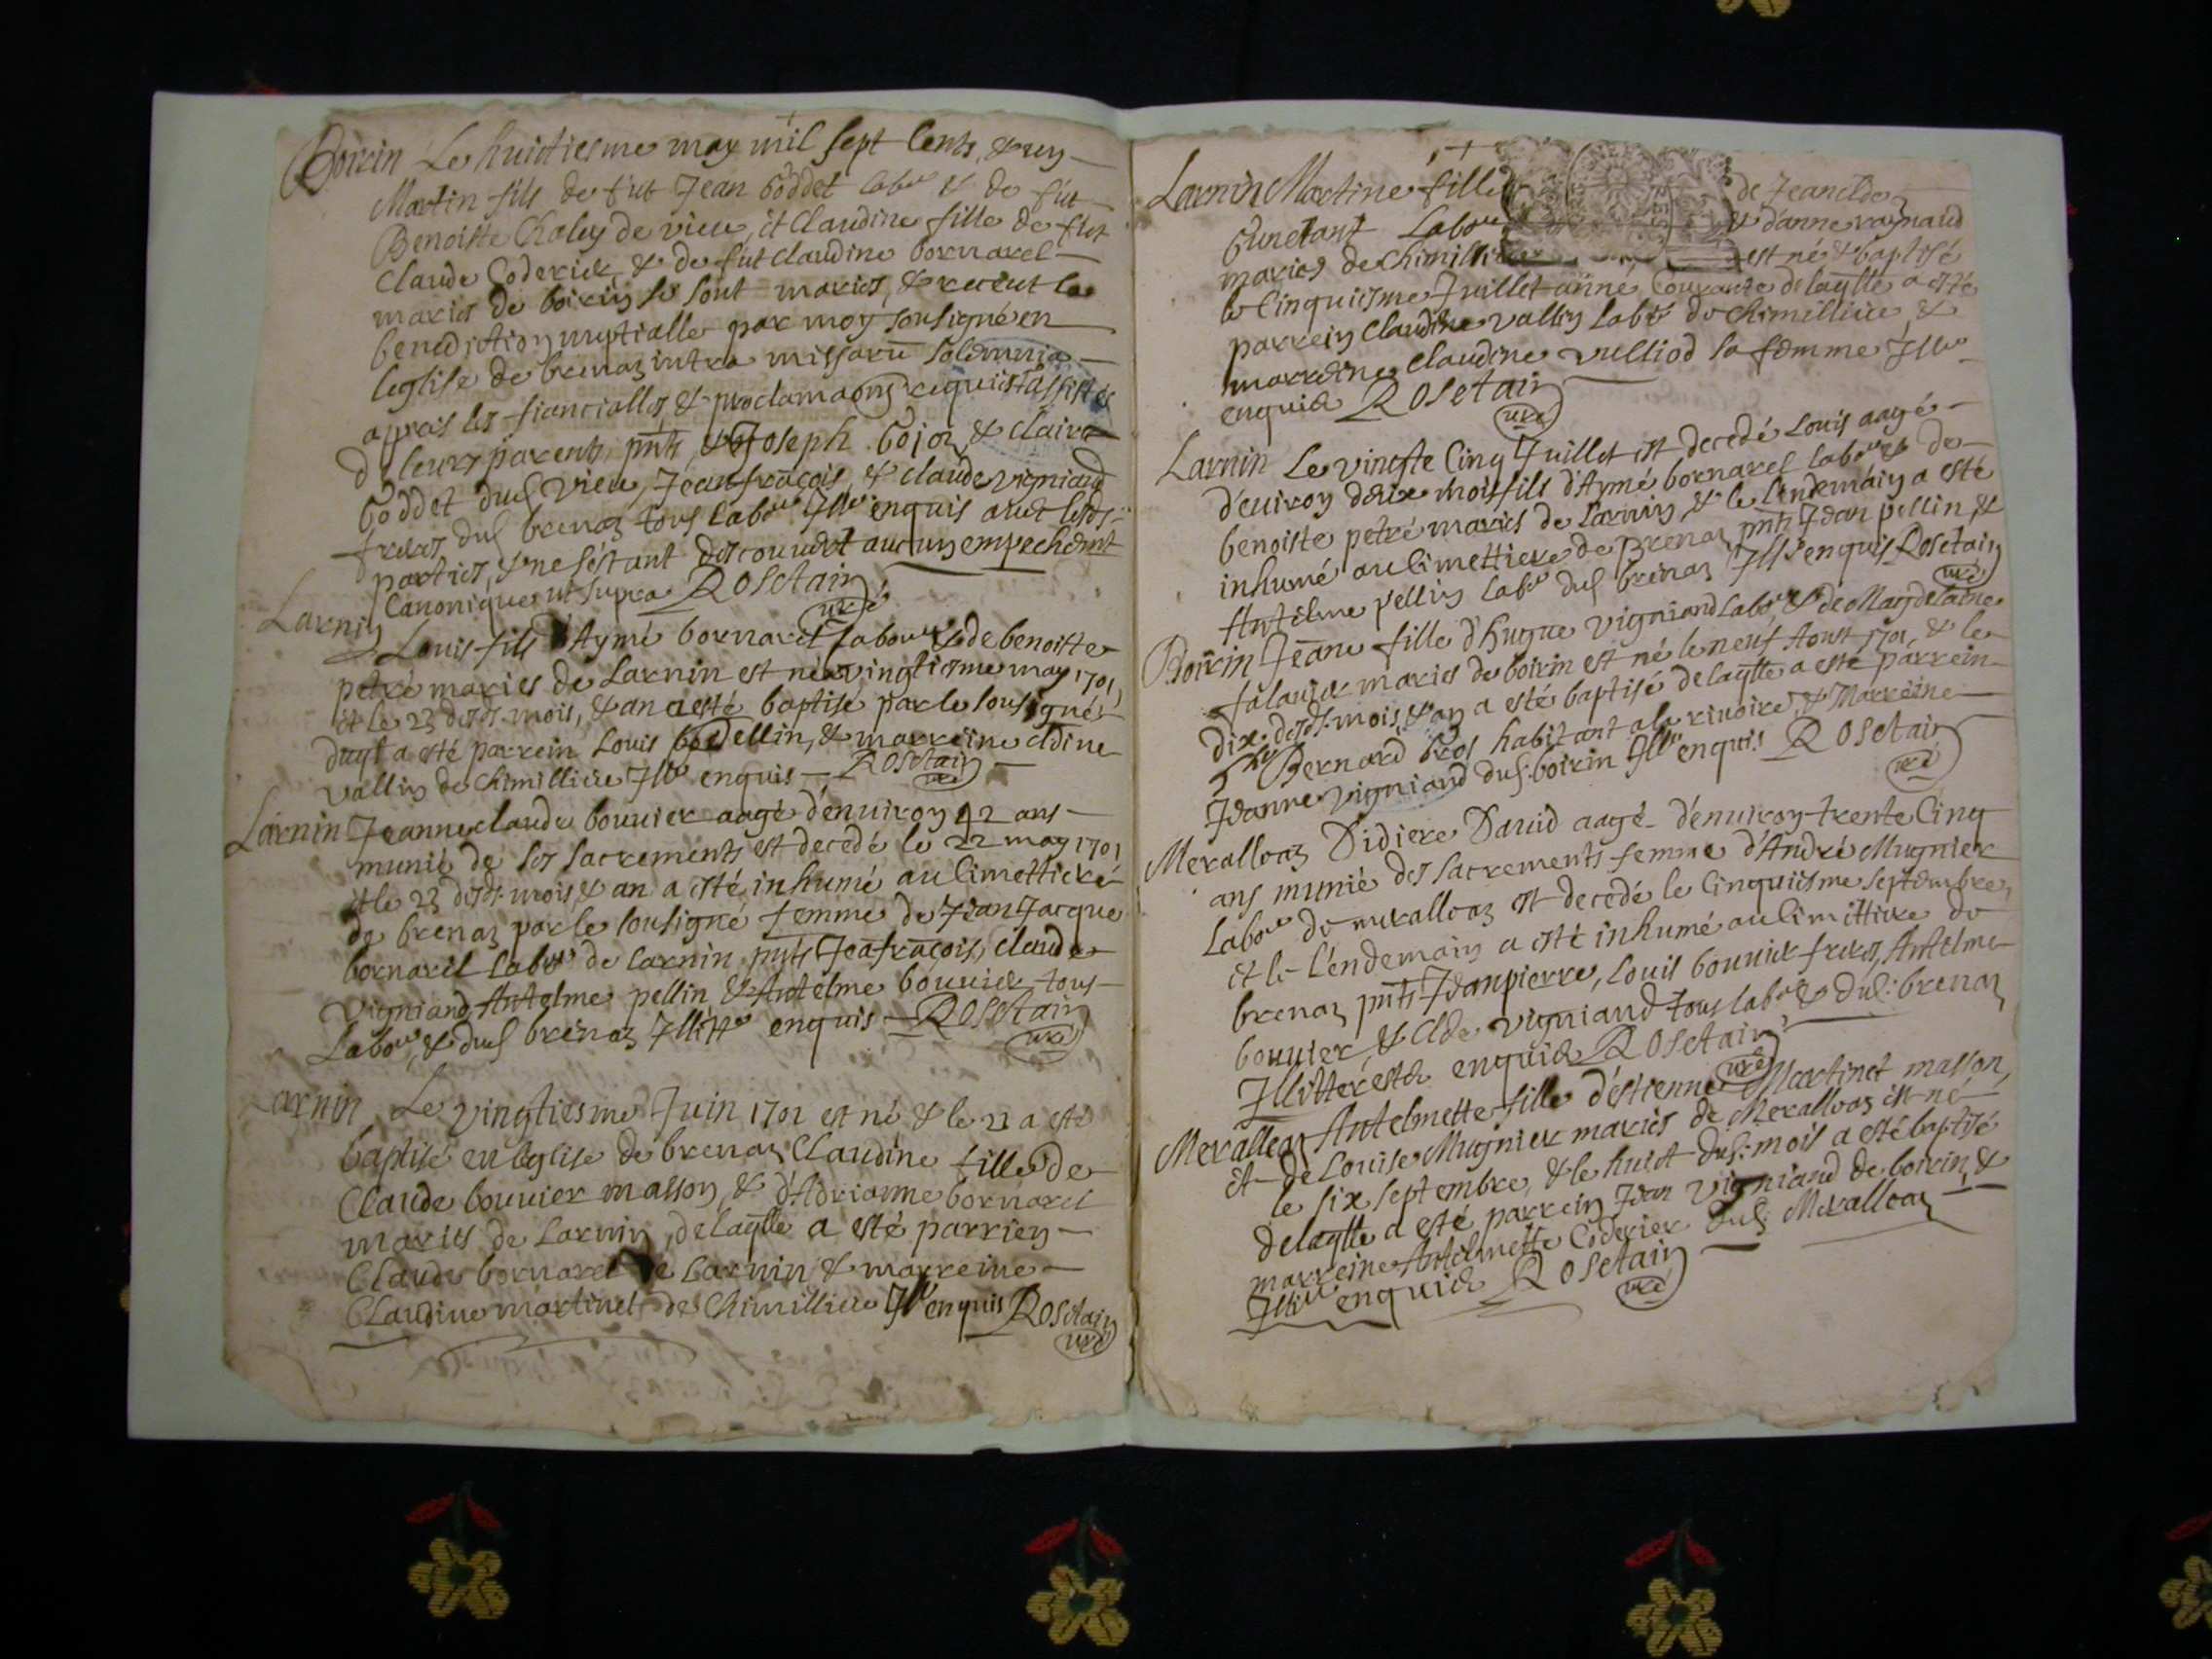 Boirin Le huictiesme may mil sept Cents, & un
Martin fils de fut Jean boddet labor & de fut
Benoiste Chaley de vieu, et Claudine fille de fut
Claude Coderier, & de fut Claudine bornarel
mariés de boirin se sont mariés, & receut la
benediction nuptialle par moy sousigné en
leglise de brenaz intra missarū solemnia
apprès les fiancialles & proclamaōns requist assistés
de leurs parents pn̄ts, & Joseph bojoz & claira
boddet dud vieu, Jeanfrācois, & claude vigniand
freres dud brenaz tous labors Illre enquis avec lesds
parties, & ne s'éstant descouvert aucun empechemt
Canonique ut supra Rosetain
curé
Larnin Louis fils d'Aymé bornarel labour & de benoiste
petré mariés de Larnin est né vingtiesme may 1701,
et le 23 desd. mois, & an a esté baptisé par le sousigné
duql a esté parrein Louis boedellin, & marreine Cldine
vallin de Chimillieu Illre enquis Rosetain
curé
Larnin Jeanneclaude bouvier aagé d'environ 42 ans
munie de ses sacrements est decedé le 22 may 1701
et le 23 desd. mois & an a esté inhumé au Cimettiere
de brenaz par le sousigné femme de Jean Jacque
bornarel labor de Larnin pn̄ts Jeāfrācois, claude
vigniand, Antelme pellin & Antelme bouvier tous
Labors, & dud brenaz Illitre enquis Rosetain
curé
Larnin Le vingtiesme Juin 1701 est né & le 21 a esté
baptisé en leglise de brenaz Claudine fille de
Claude bouvier masson, & d'Adrianne bornarel
mariés de Larnin, de laqlle a esté parrien
Claude bornarel de Larnin & marreine
Claudine martinet de Chimillieu Illre enquis Rosetain
curé
Larnin Martine fille de Jean
labor & d'anne raynaud
mariés de Chimillieu est né & baptisé
le Cinquiesme Juillet anne Courante de laqlle a esté
parrein Claudine vallin labor de Chimillieu, &
marreine Claudine vulliod sa femme Illre
enquis Rosetain
curé
Larnin Le vingte Cinq Juillet est decedé Louis aagé
d'environ deux mois fils d'Aymé bornarel labour & de
benoiste petré mariés de Larnin, & le lendemain a esté
inhumé au Cimettiere de Brenaz pn̄ts Jean pellin &
Antelme pellin labors dud brenaz Illrs enquis Rosetain
curé
Boirin Jeāne fille d'hugue vigniand labor & de Magdelaine
falavier mariés de boirin est né le neuf Aoust 1701, & le
dix desd. mois, & an a esté baptisé de laqlle a esté parrein
Bernard bros habitant a la rivoire, & Marreine
Jeanne vigniand dud. boirin Illre enquis Rosetain
curé
Meralloaz Didiere David aagé d'environ trente Cinq
ans munié des sacrements femme d'André Mugnier
Labor de meralloaz est decedé le Cinquiesme septembre,
et le lendemain a esté inhumé au Cimittiere de
brenaz pn̄ts Jeanpierre, Louis bouvier freres, Antelme
bouvier, & Clde vigniand tous labors & dud. brenaz
Illitterestes enquis Rosetain
curé
Meralloaz Antelmette fille d'éstienne Martinet masson,
et de Louise Mugnier mariés de Meralloaz est né
le six septembre, & le huict dud. mois a esté baptisé
de laqlle a esté parrein Jean vigniand de boirin, &
marreine Antelmette Coderier dud. Meralloaz
Illitre enquis Rosetain
curé